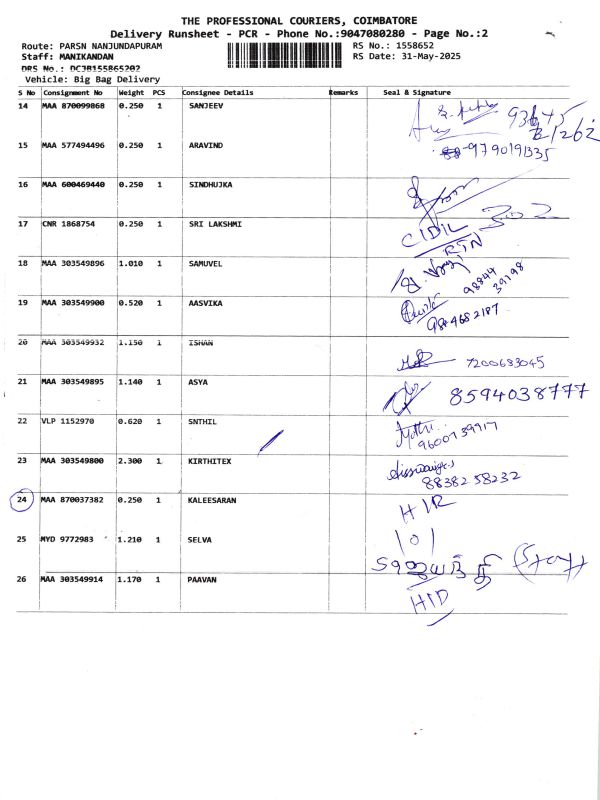 THE PROFESSIONAL COURIERS, COIMBATORE
Delivery Runsheet - PCR - Phone No.:9047080280 - Page No.:2
Route: PARSN NANJUNDAPURAM
RS No.: 1558652
Staff: MANIKANDAN
RS Date: 31-May-2025
DRS No.: DCJB155865202
Vehicle: Big Bag Delivery
S No Consignment No Weight PCS Consignee Details Remarks Seal & Signature
14 MAA 870099868 0.250 1 SANJEEV
15 MAA 577494496 0.250 1 ARAVIND 9790191335
16 MAA 600469440 0.250 1 SINDHUJKA
17 CNR 1868754 0.250 1 SRI LAKSHMI
CIDIL
RTN
18 MAA 303549896 1.010 1 SAMUVEL
98844
39198
19 MAA 303549900 0.520 1 AASVIKA
20 MAA 303549932 1.150 1 ISHAN
7200683045
21 MAA 303549895 1.140 1 ASYA 8594038777
22 VLP 1152970 0.620 1 SNTHIL
23 MAA 303549800 2.300 1 KIRTHITEX
88382 58232
24 MAA 870037382 0.250 1 KALEESARAN
HIR
25 MYD 9772983 1.210 1 SELVA 101
26 MAA 303549914 1.170 1 PAAVAN
HID